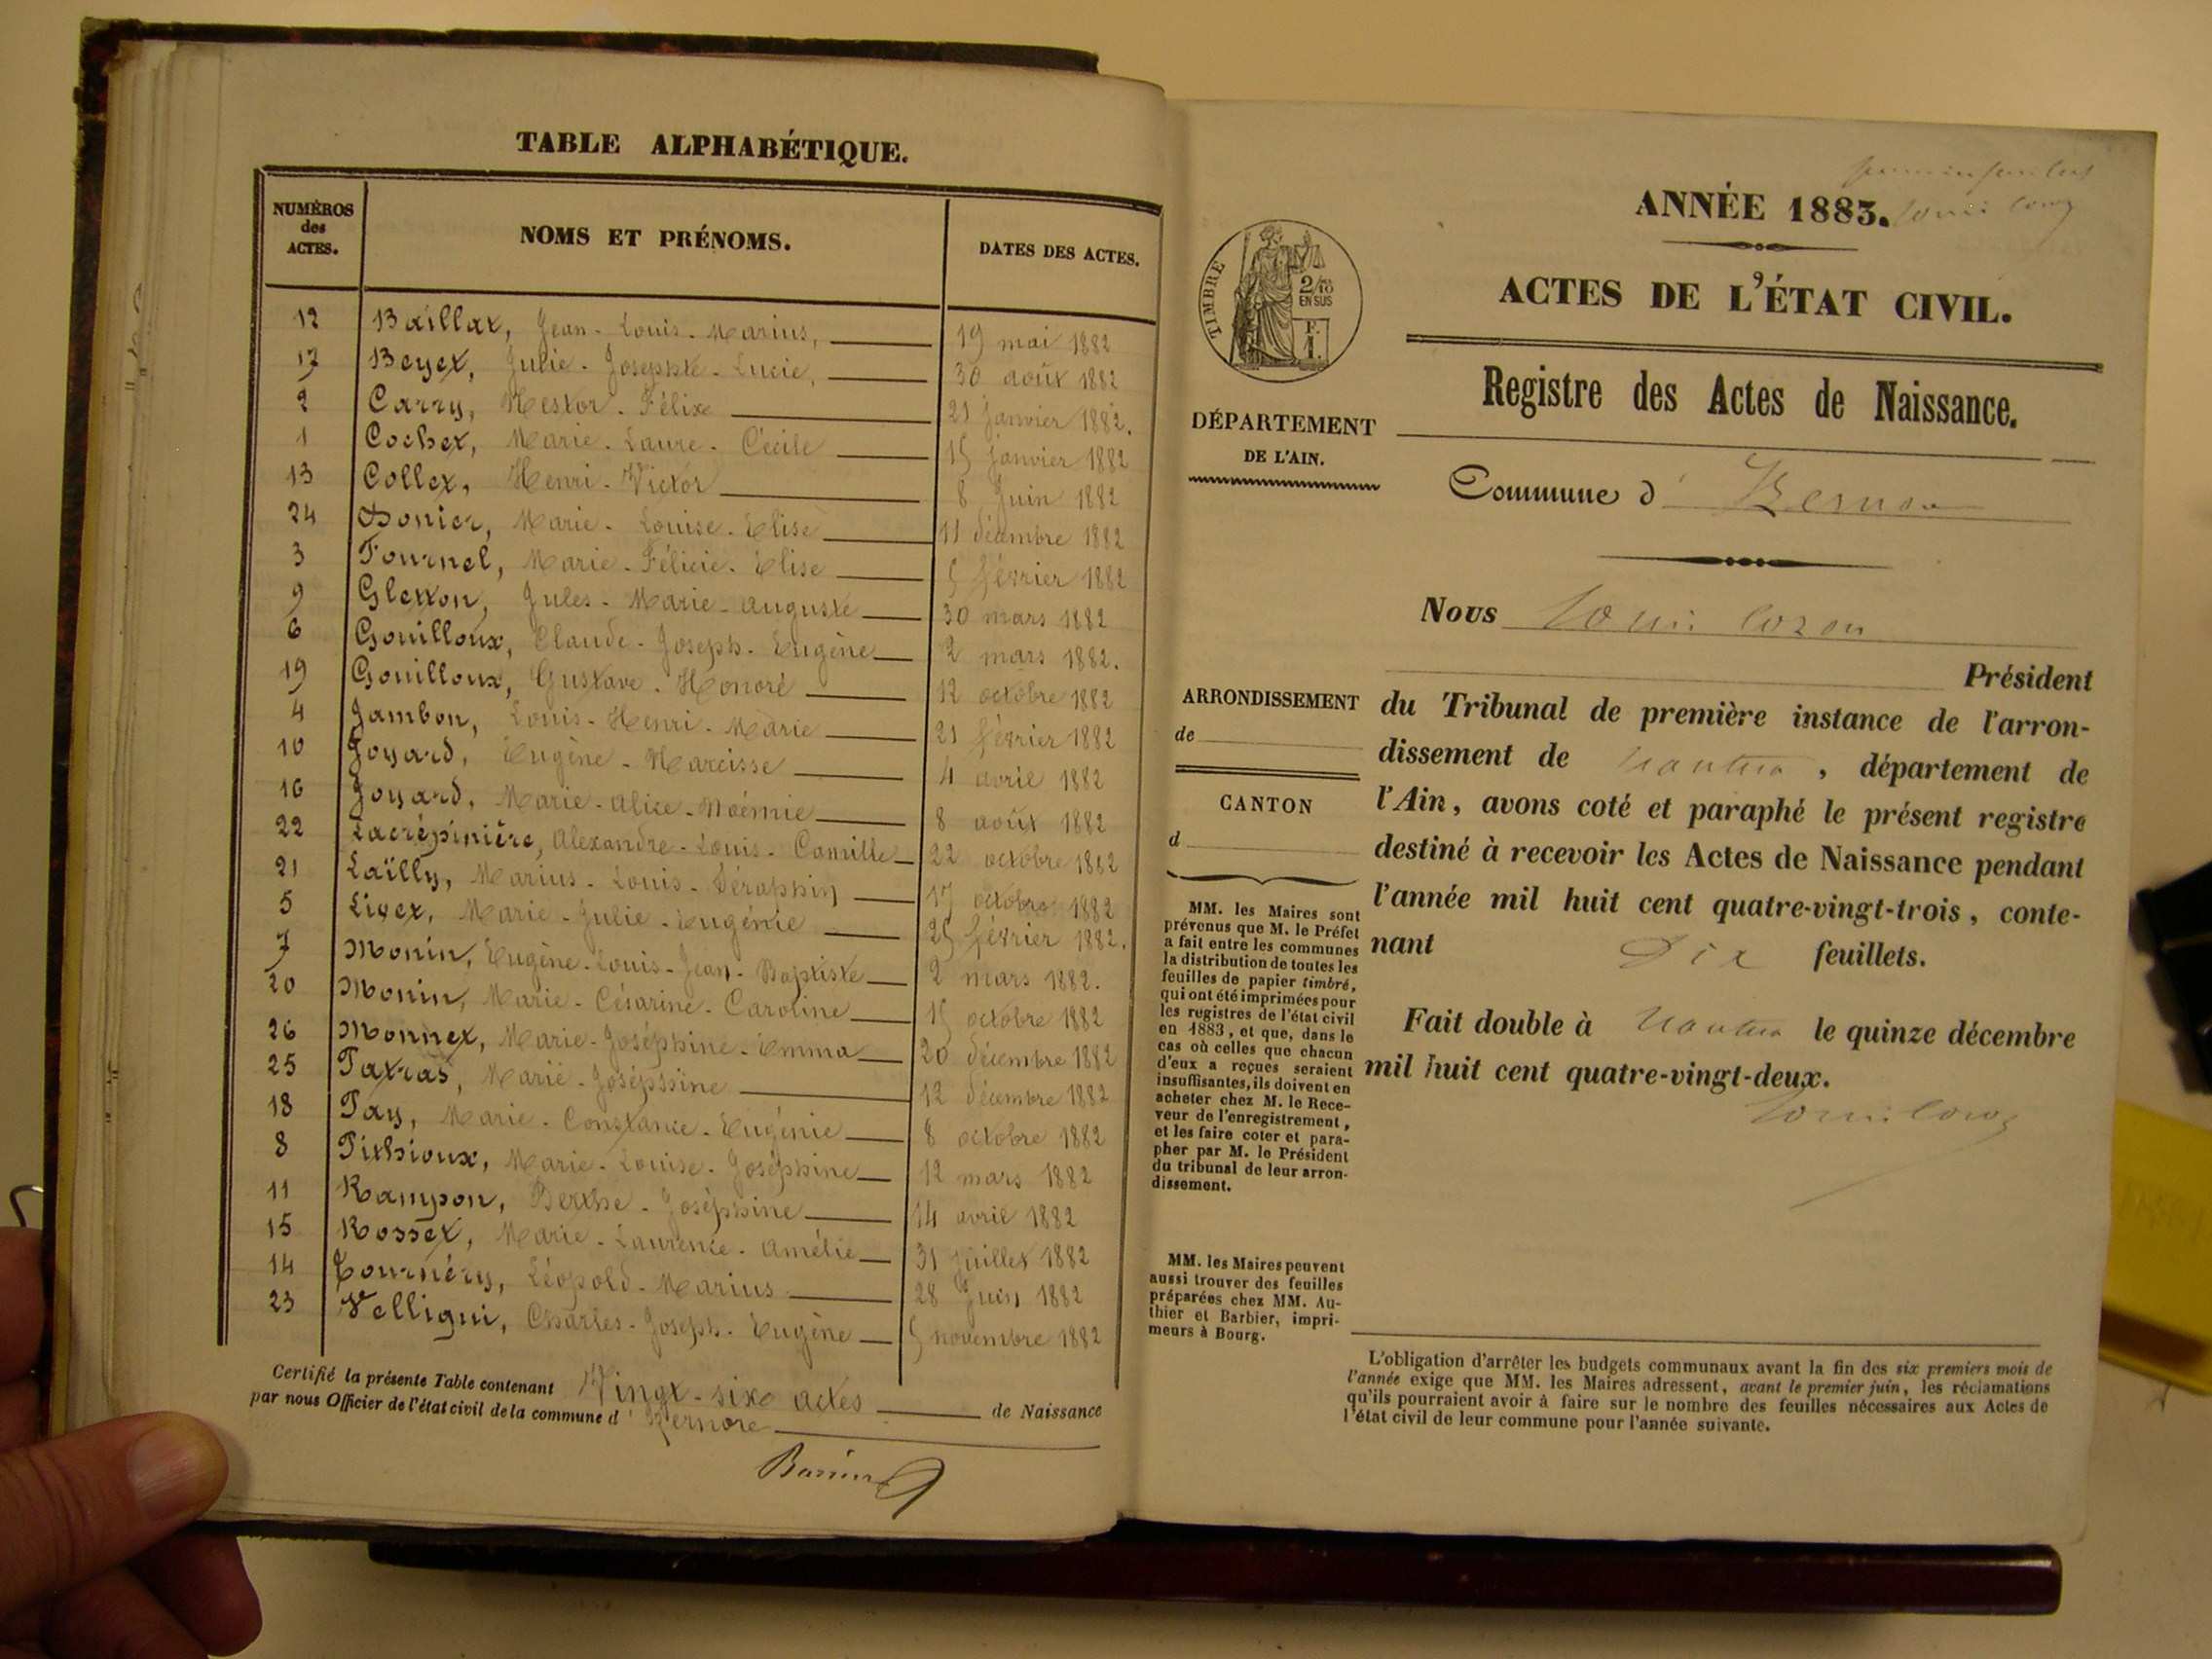 TABLE ALPHABÉTIQUE.
NUMÉROS des ACTES. NOMS ET PRÉNOMS. DATES DES ACTES.
12 Baillat, Jean-Louis-Marius, 19 mai 1882
17 Beyet, Julie-Josephte-Lucie, 30 août 1882
2 Carry, Nestor-Félix 21 janvier 1882.
1 Cochet, Marie-Laure-Cécile 15 janvier 1882
13 Collet, Henri-Victor 8 Juin 1882
24 Donier, Marie-Louise-Elise 11 décembre 1882
3 Fournel, Marie-Félicie-Elise 5 février 1882
9 Gletton, Jules-Marie-Auguste 30 mars 1882
6 Gouilloux, Claude-Joseph-Eugène 2 mars 1882.
19 Gouilloux, Gustave-Honoré 12 octobre 1882
4 Jambon, Louis-Henri-Marie 21 février 1882
10 Joyard, Eugène-Narcisse 4 avril 1882
16 Joyard, Marie-Alice-Noémie 8 août 1882
22 Lacrépinière, Alexandre-Louis-Camille 22 octobre 1882
21 Laïlly, Marius-Louis-Séraphin 17 octobre 1882
5 Livet, Marie-Julie-Eugénie 25 février 1882.
7 Monin, Eugène-Louis-Jean-Baptiste 2 mars 1882.
20 Monin, Marie-Césarine-Caroline 15 octobre 1882
26 Monnet, Marie-Joséphine-Emma 20 décembre 1882
25 Patras, Marie-Joséphine 12 décembre 1882
18 Pay, Marie-Constance-Eugénie 8 octobre 1882
8 Pithioux, Marie-Louise-Joséphine 12 mars 1882
11 Rampon, Berthe-Joséphine 14 avril 1882
15 Rosset, Marie-Laurence-Amélie 31 juillet 1882
14 Tournéry, Léopold-Marius 28 Juin 1882
23 Velligni, Charles-Joseph-Eugène 5 novembre 1882
Certifié la présente Table contenant Vingt-six actes de Naissance
par nous Officier de l'état civil de la commune d'
ANNÉE 1883.
ACTES DE L'ÉTAT CIVIL.
TIMBRE
2/10
EN SUS
F.
1.
Registre des Actes de Naissance.
DÉPARTEMENT
DE L'AIN.
Commune d'
Nous
Président
ARRONDISSEMENT
de
CANTON
d
du Tribunal de première instance de l'arron-
dissement de Nantua, département de
l'Ain, avons coté et paraphé le présent registre
destiné à recevoir les Actes de Naissance pendant
l'année mil huit cent quatre-vingt-trois, conte-
nant dix feuillets.
Fait double à Nantua le quinze décembre
mil huit cent quatre-vingt-deux.
MM. les Maires sont
prévenus que M. le Préfet
a fait entre les communes
la distribution de toutes les
feuilles de papier timbré,
qui ont été imprimées pour
les registres de l'état civil
en 1883, et que, dans le
cas où celles que chacun
d'eux a reçues seraient
insuffisantes, ils doivent en
acheter chez M. le Rece-
veur de l'enregistrement,
et les faire coter et para-
pher par M. le Président
du tribunal de leur arron-
dissement.
MM. les Maires peuvent
aussi trouver des feuilles
préparées chez MM. Au-
thier et Barbier, impri-
meurs à Bourg.
L'obligation d'arrêter les budgets communaux avant la fin des six premiers mois de
l'année exige que MM. les Maires adressent, avant le premier juin, les réclamations
qu'ils pourraient avoir à faire sur le nombre des feuilles nécessaires aux Actes de
l'état civil de leur commune pour l'année suivante.